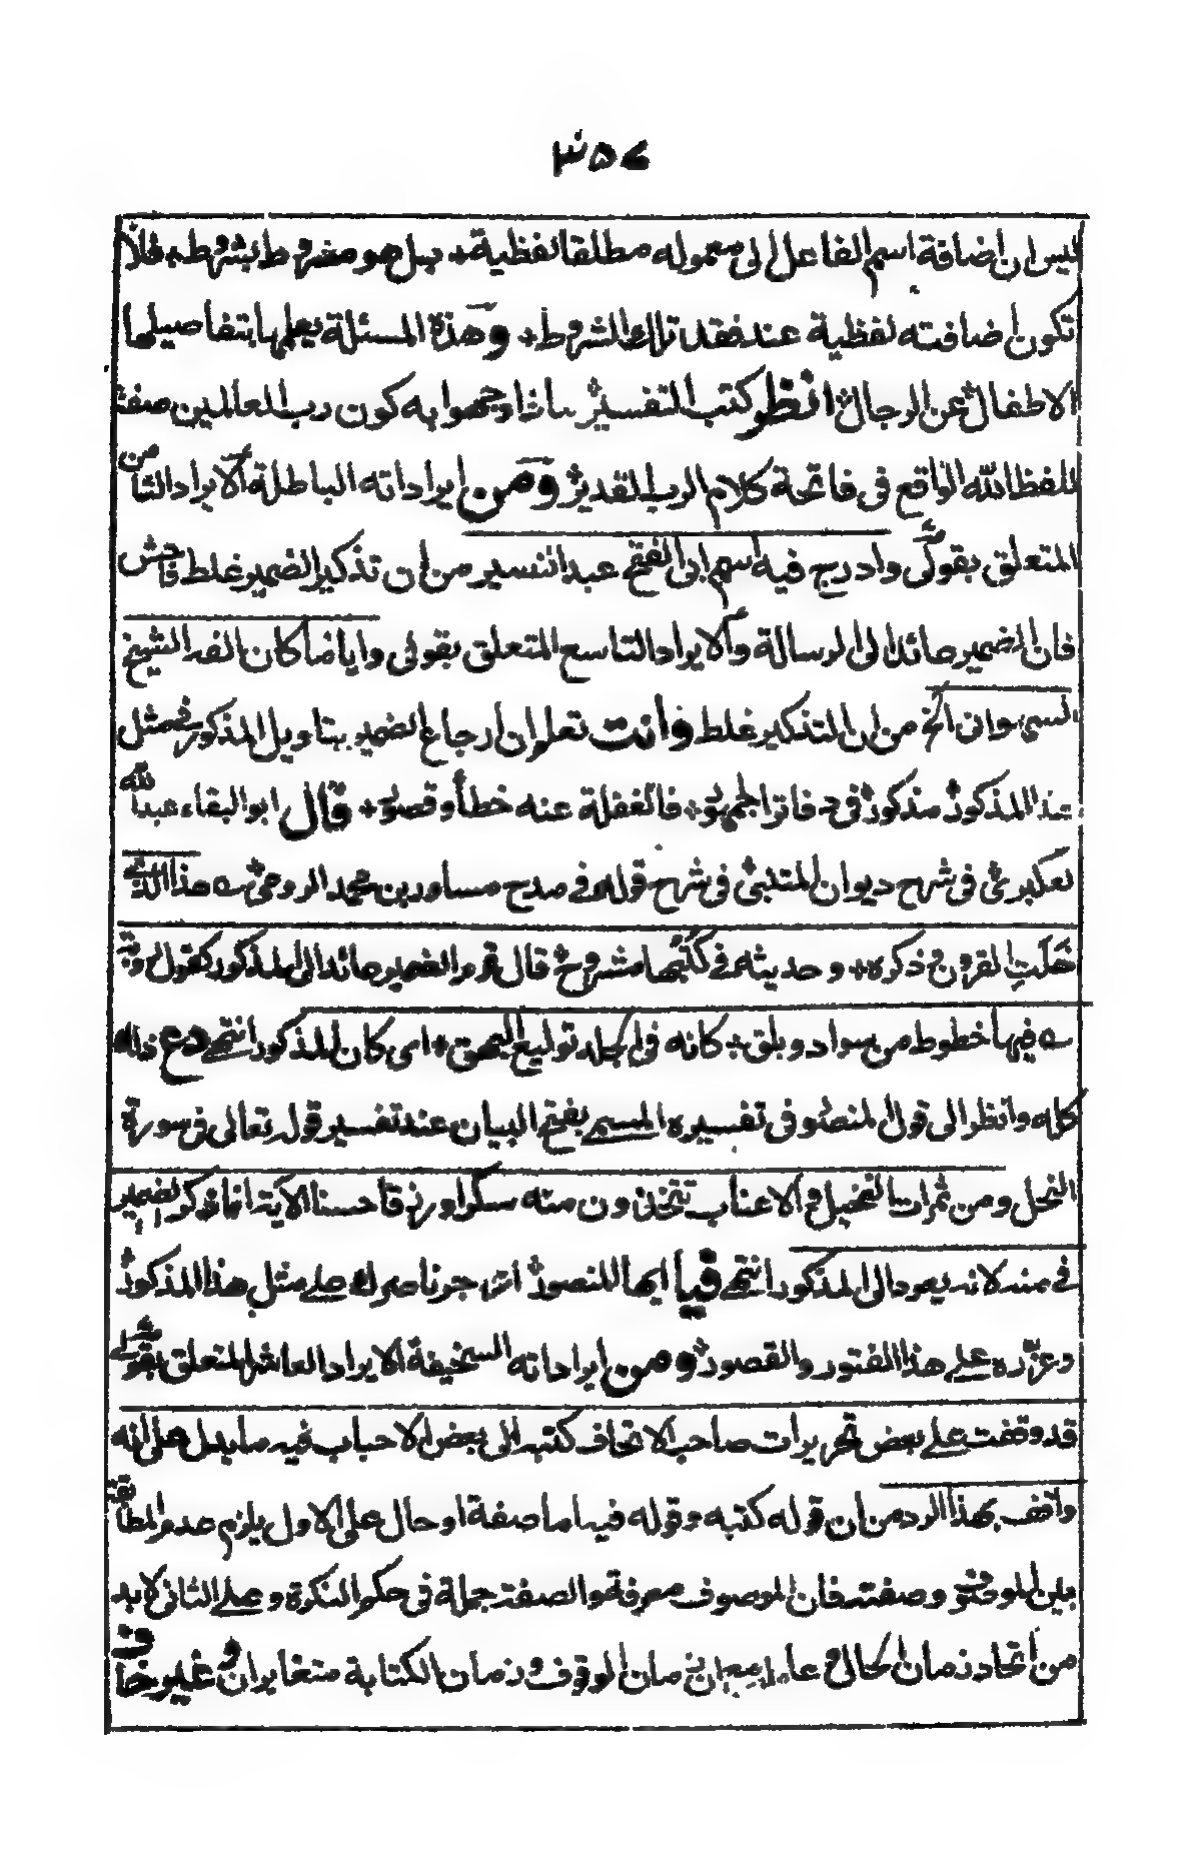 ٣٥٧
ليس ان اضافة اسم الفاعل الى معموله مطلقا لفظية + بل هو مشروط بشروط + فلا
تكون اضافته لفظية عند فقد تلك الشروط + وهذه المسئلة يعلمها بتفاصيلها
الاطفال عن الرجال انظر كتب التفسير بماذا وجهوا به كون رب العالمين صفة
للفظ الله الواقع في فاتحة كلام الرب القدير ومن ايراداته الباطلة الايراد الثامن
المتعلق بقولي وادرج فيه اسم ابى الفتح عبد النسير من ان تذكير الضمير غلط فاحش
فان الضمير عائد الى الرسالة والايراد التاسع المتعلق بقولي واياضا كان الفه الشيخ
السهسوانى الخ من ان التذكير غلط وانت تعلم ان ارجاع الضمير بتاويل المذكور ومثل
هذا المذكور مذكور في دفاتر الجمهور + فالغفلة عنه خطأ وقصور + قال ابو البقاء عبد الله
العكبرى في شرح ديوان المتنبى في شرح قوله في مدح مساور بن محمد الرومى ے هذا الذى
خلت القرون وذكره + وحديثه في كتبها مشروح قال قوم الضمير عائد الى المذكور كقول روبة
ے فيها خطوط من سواد وبلق + كانه في الجلد توليع البهق + اى كان المذكور انتهى دع هذا
كله وانظر الى قول المنصور في تفسيره المسمى بفتح البيان عند تفسير قوله تعالى في سورة
النحل ومن ثمرات النخيل والاعناب تتخذون منه سكرا ورزقا حسنا الآية انما ذكر الضمير
في منه لانه يعود الى المذكور انتهى فيا ايها المنصور اترجو ناصرك على مثل هذا المذكور
وعزّره على هذا الفتور والقصور ومن ايراداته السخيفة الايراد العاشر المتعلق بقولي
قد وقفت على بعض تحريرات صاحب الاتحاف كتبه الى بعض الاحباب فيه ما يدل على انه
واقف بهذا الرد من ان قوله كتبه وقوله فيه اما صفة او حال على الاول يلزم عدم المطابقة
بين الموصوف وصفته فان الموصوف معرفة والصفة جملة في حكم النكرة وعلى الثانى لا بد
من اتحاد زمان الحال وعاملها مع ان زمان الوقوف وزمان الكتابة متغايران وغير خاف